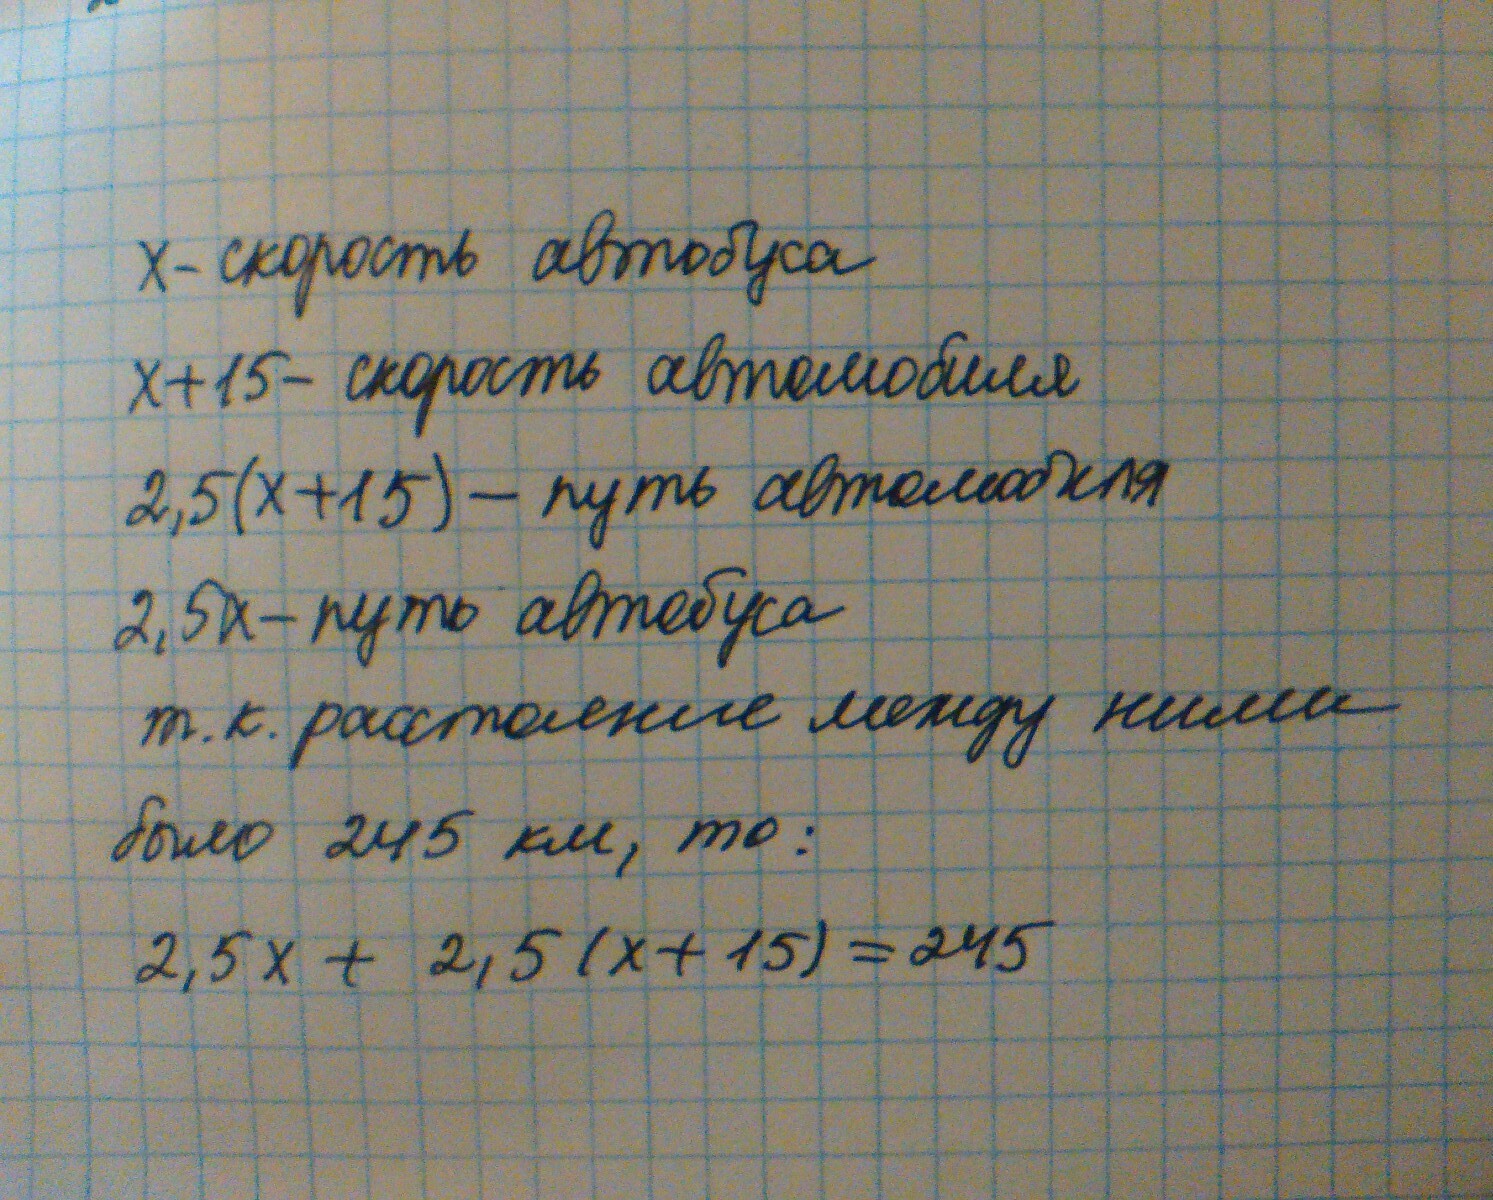 x - скорость автобуса
x+15 - скорость автомобиля
2,5(x+15) - путь автомобиля
2,5x - путь автобуса
т.к. расстояние между ними
было 245 км, то:
2,5x + 2,5(x+15) = 245